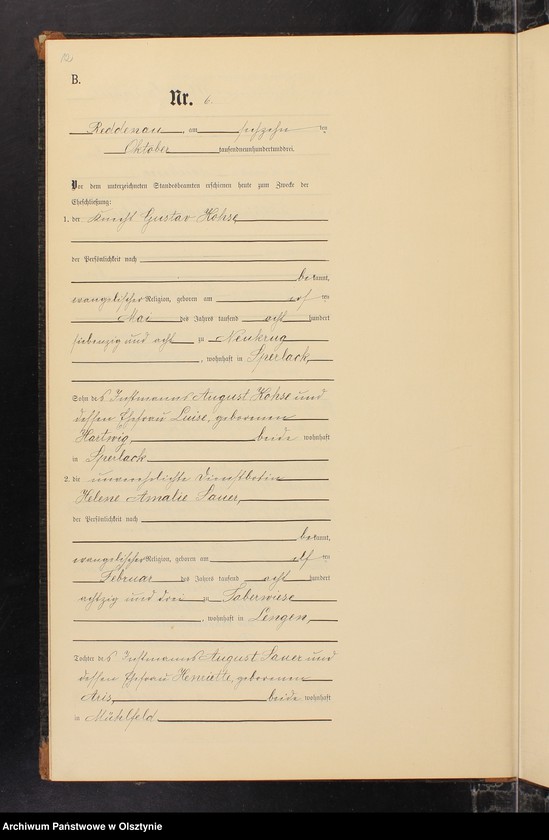 B.
Nr. 6.
Reddenau, am sechzehn ten
Oktober tausendneunhundertunddrei.
Vor dem unterzeichneten Standesbeamten erschienen heute zum Zwecke der
Eheschließung:
1. der Knecht Gustav Kohse,
der Persönlichkeit nach
bekannt,
evangelischer Religion, geboren am ten
Mai des Jahres tausend acht hundert
siebenzig und acht zu Neukrug
, wohnhaft in Sperlack,
Sohn des Instmanns August Kohse und
dessen Ehefrau Luise, geborenen
Hartwig, beide wohnhaft
in Sperlack
2. die unverehelichte Dienstbotin
Helene Amalie Sauer,
der Persönlichkeit nach
bekannt,
evangelischer Religion, geboren am elf ten
Februar des Jahres tausend acht hundert
achtzig und drei zu Taberwiese
, wohnhaft in Lengen,
Tochter des Instmanns August Sauer und
dessen Ehefrau Henriette, geborenen
beide wohnhaft
in
Archiwum Państwowe w Olsztynie